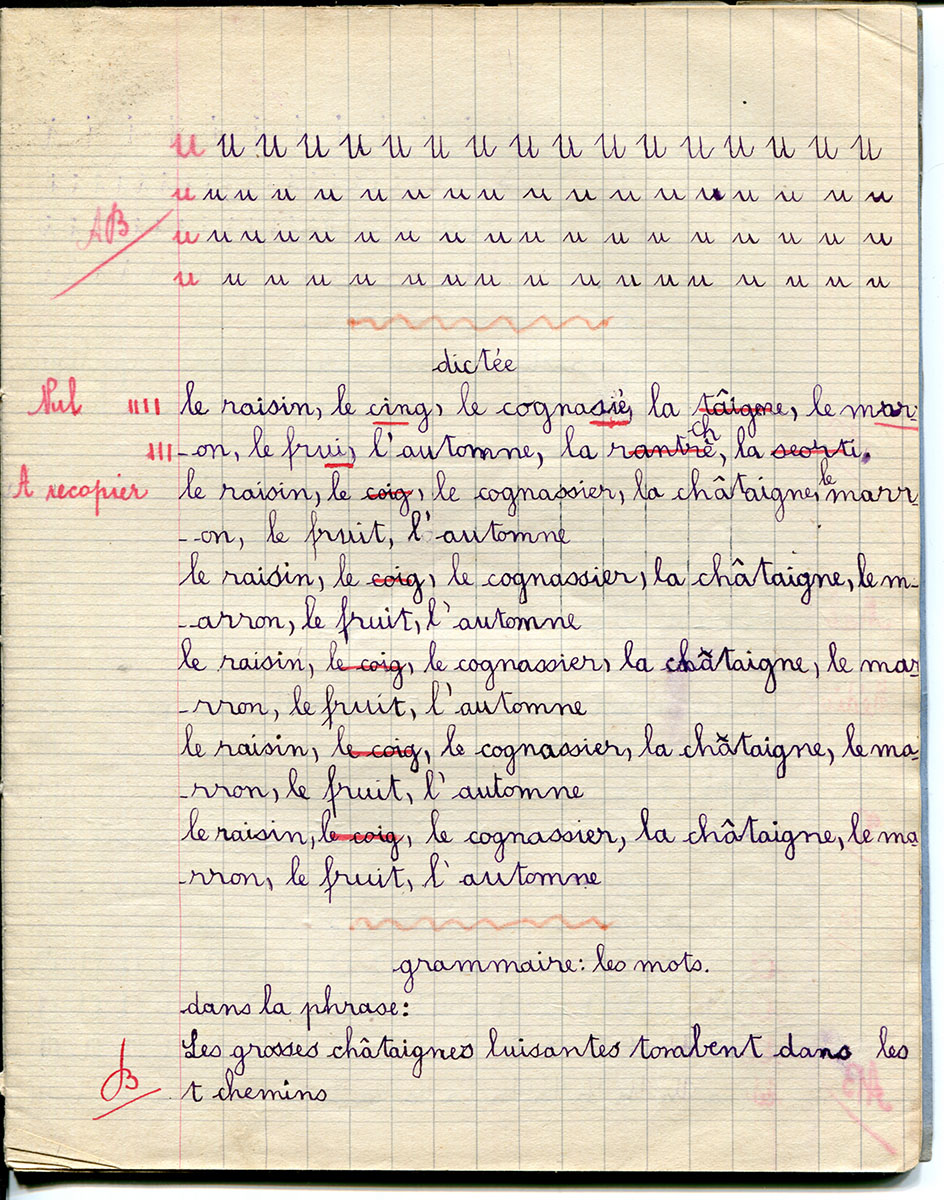 u u u u u u u u u u u u u u u u u
u u u u u u u u u u u u u u u u u u
AB
u u u u u u u u u u u u u u u u u u
u u u u u u u u u u u u u u u u u u
dictée
Nul IIII le raisin, le cing, le cognasié, la tâigne, le mar-
III -on, le frui, l'automne, la rantrè, ch la seorti.
A recopier le raisin, le coig, le cognassier, la châtaigne, le marr-
-on, le fruit, l'automne
le raisin, le coig, le cognassier, la châtaigne, le m-
-arron, le fruit, l'automne
le raisin, le coig, le cognassier, la châtaigne, le mar-
-rron, le fruit, l'automne
le raisin, le coig, le cognassier, la châtaigne, le ma-
-rron, le fruit, l'automne
le raisin, le coig, le cognassier, la châtaigne, le ma-
-rron, le fruit, l'automne
grammaire: les mots.
dans la phrase:
Les grosses châtaignes luisantes tombent dans les
B t chemins